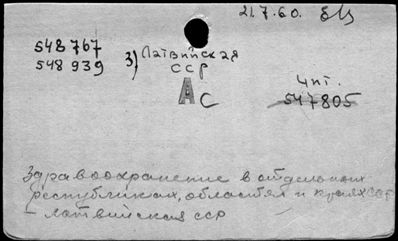 21.7.60.
548767
548939
3) Латвийская
ССР
А С
Чит.
547805
Здравоохранение в отдельных
республиках, областях и краях СССР
Латвийская ССР